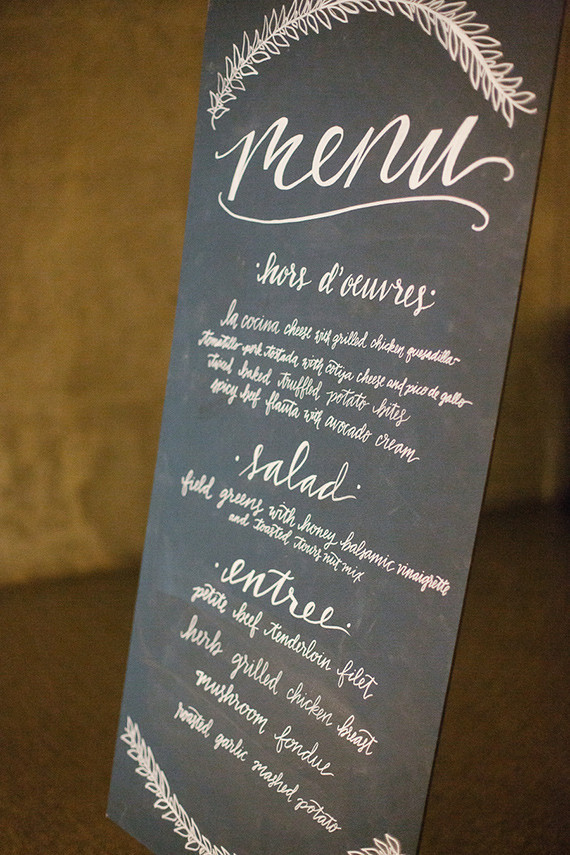 menu
·hors d'oeuvres·
la cocina cheese with grilled chicken quesadilla
tomatillo pork tostada with cotija cheese and pico de gallo
twice baked truffled potato bites
spicy beef flauta with avocado cream
·salad·
field greens with honey balsamic vinaigrette
and toasted tours nut mix
·entree·
petite beef tenderloin filet
herb grilled chicken breast
mushroom fondue
roasted garlic mashed potato